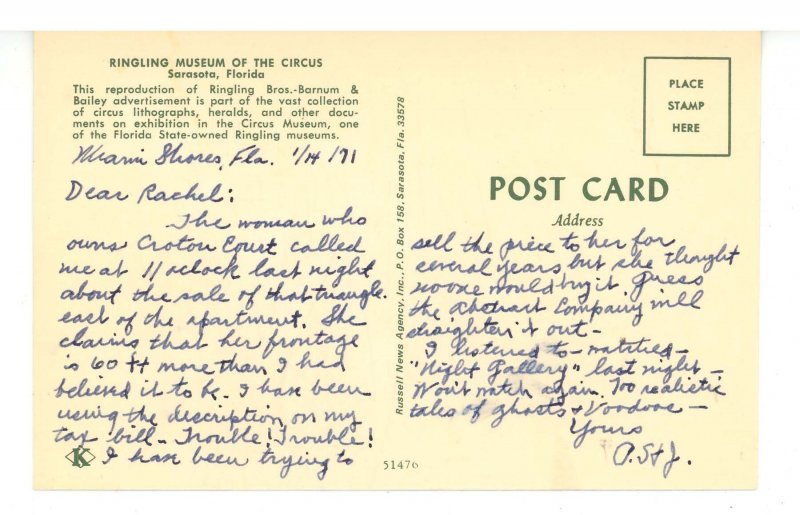 RINGLING MUSEUM OF THE CIRCUS
Sarasota, Florida
This reproduction of Ringling Bros.-Barnum &
Bailey advertisement is part of the vast collection
of circus lithographs, heralds, and other docu-
ments on exhibition in the Circus Museum, one
of the Florida State-owned Ringling museums.
Miami Shores, Fla. 1/14/71
Dear Rachel:
The woman who
owns Croton Court called
me at 11 oclock last night
about the sale of that triangle.
east of the apartment. She
claims that her frontage
is 60 ft more than I had
believed it to be. I have been
using the description on my
tax bill - Trouble! Trouble!
I have been trying to
K
51476
Russell News Agency, Inc., P.O. Box 158, Sarasota, Fla. 33578
PLACE
STAMP
HERE
POST CARD
Address
sell the piece to her for
several years but she thought
no one would buy it. Guess
the Abstract Company will
straighten it out -
I listened to - watched -
"Night Gallery" last night -
Won't watch again. Too realistic
tales of ghosts & Voodoos -
Yours
A. St J.